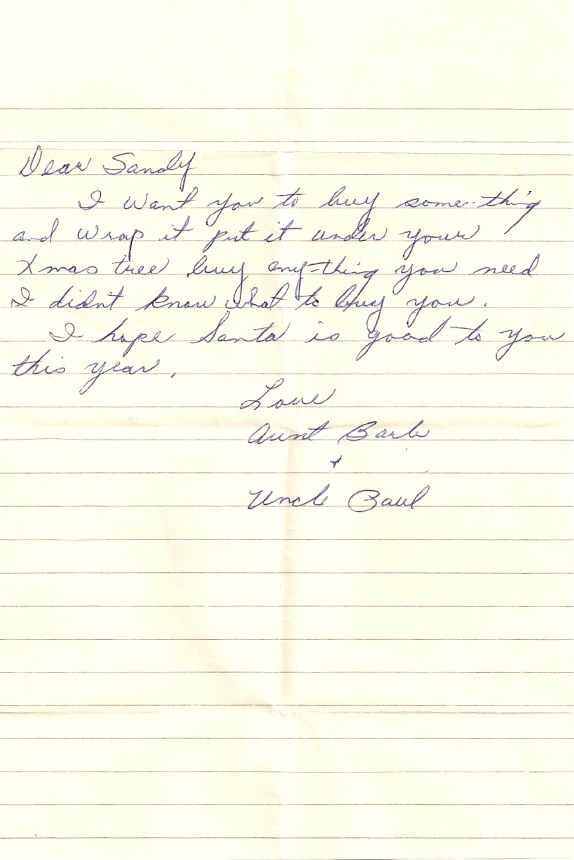 Dear Sandy
I want you to buy some-thing
and wrap it put it under your
Xmas tree buy any-thing you need
I didn't know what to buy you.
I hope Santa is good to you
this year.
Love
Aunt Barb
+
Uncle Paul